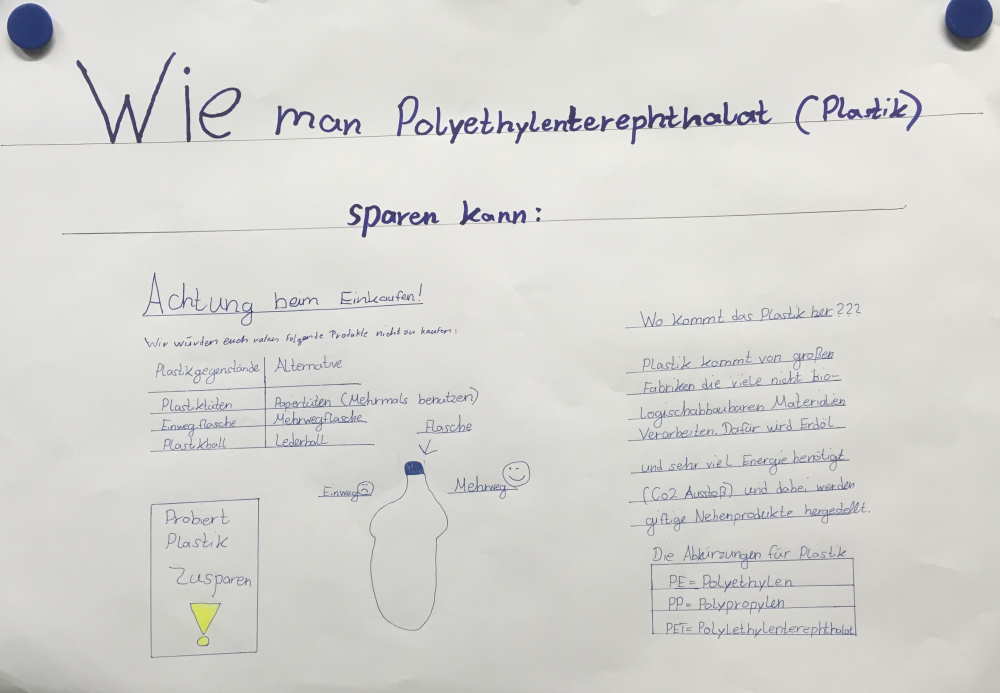 Wie man Polyethylenterephthalat (Plastik)
sparen kann:
Achtung beim Einkaufen!
Wir würden euch raten folgende Produkte nicht zu kaufen:
Plastikgegenstände Alternative
Plastiktüten Papertüten (Mehrmals benutzen)
Einwegflasche Mehrwegflasche
Plastikball Lederball
Flasche
Einweg Mehrweg
Probiert
Plastik
Zusparen
!
Wo kommt das Plastik her???
Plastik kommt von großen
Fabriken die viele nicht bio-
logischabbaubaren Materialien
Verarbeiten. Dafür wird Erdöl
und sehr viel Energie benötigt
(Co2 Ausstoß) und dabei werden
giftige Nebenprodukte hergestellt.
Die Abkürzungen für Plastik
PE= Polyethylen
PP= Polypropylen
PET= Polylethylenterephthalat